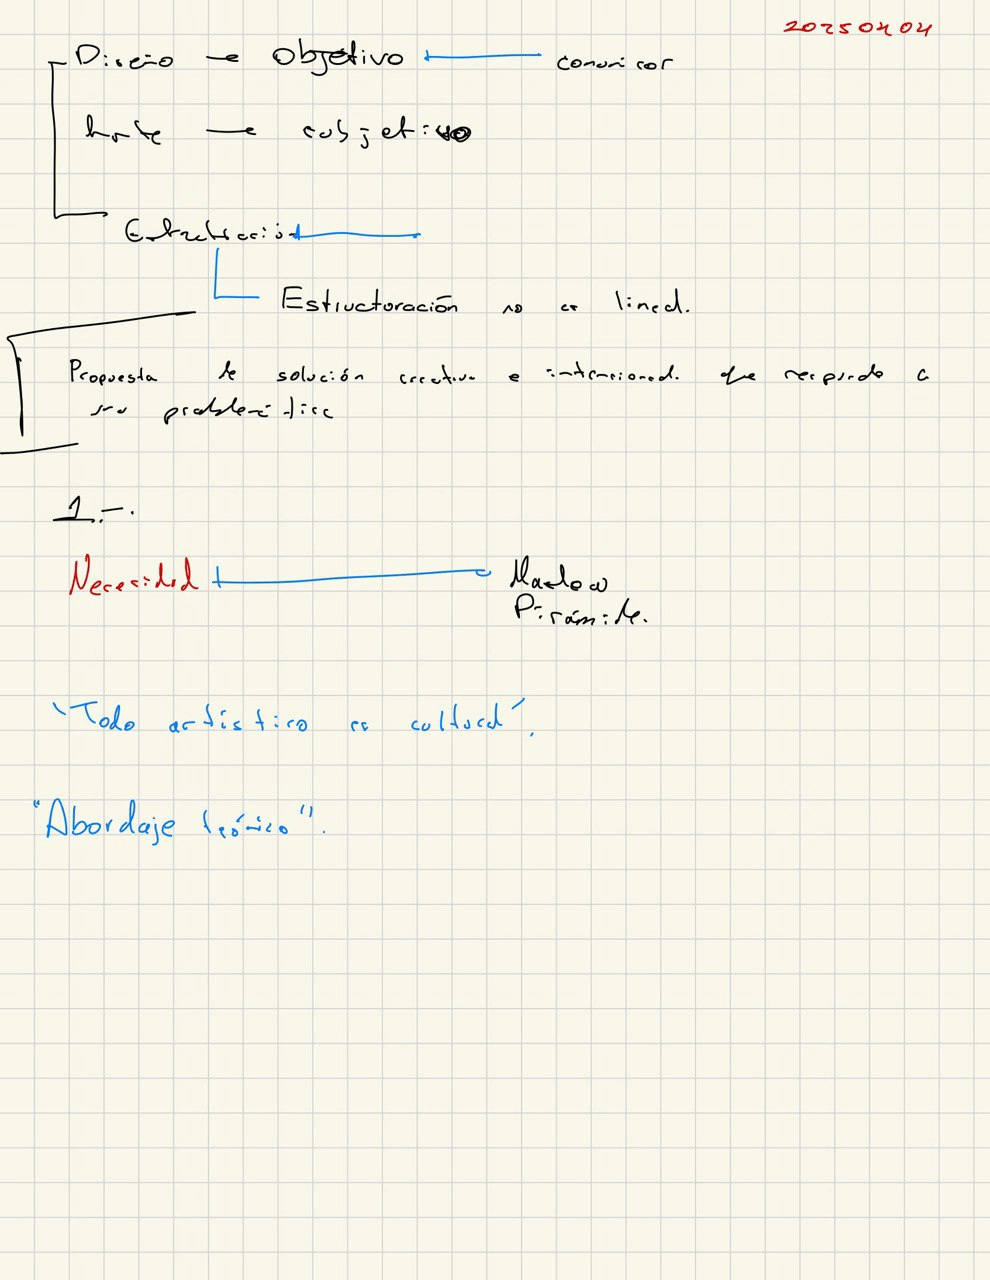 20250404
Diseño → Objetivo ← comunicar
Arte → subjetivo
Estructuración no es lineal.
Propuesta de solución creativa e intencional. que responde a
una problemática
1.-.
Necesidad Maslow
Pirámide.
"Todo artístico es cultural".
"Abordaje teórico".